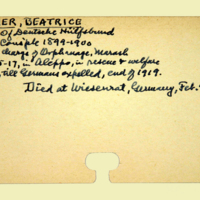 ER, BEATRICE
Of Deutsche Hülfsbund
Consple 1899-1900
charge of Orphanage, Marash
5-17, in Aleppo, in rescue & welfare
, till Germans expelled, end of 1919.
Died at Wiesenrat, Germany, Feb.